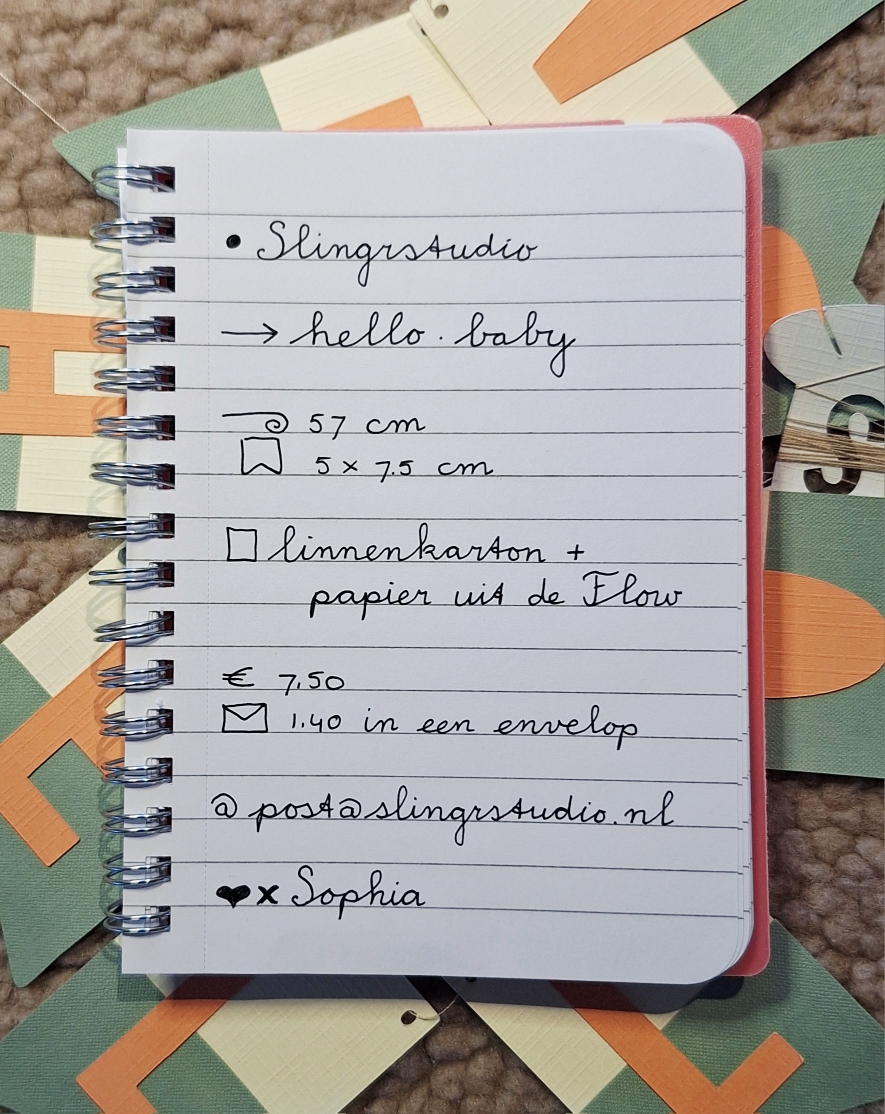 • Slingrstudio
→ hello · baby
57 cm
5 x 7.5 cm
linnenkarton +
papier uit de Flow
€ 7,50
1.40 in een envelop
@ post@slingrstudio.nl
♥x Sophia
S